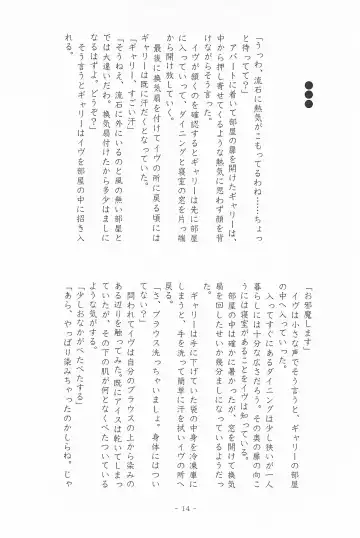 ●●●
「うっわ、流石に熱気がこもってるわね……ちょっ
と待ってて?」
アパートに着いて部屋の扉を開けたギャリーは、
中から押し寄せてくるような熱気に思わず顔を背
けながらそう言った。
イヴが頷くのを確認するとギャリーは先に部屋
に入っていって、ダイニングと寝室の窓を片っ端
から開け放していく。
最後に換気扇を付けてイヴの所に戻る頃には
ギャリーは既に汗だくとなっていた。
「ギャリー、すごい汗」
「そうねえ、流石に外にいるのと風の無い部屋と
では大違いだわ。換気扇付けたから多少はましに
なるはずよ。どうぞ?」
そう言うとギャリーはイヴを部屋の中に招き入
れる。
「お邪魔します」
イヴは小さな声でそう言うと、ギャリーの部屋
の中へ入っていった。
入ってすぐにあるダイニングは少し狭いが一人
暮らしには十分な広さだろう。その奥の扉の向こ
うには寝室があることをイヴは知っている。
部屋の中は確かに暑かったが、窓を開けて換気
扇を回したせいか幾分ましになっているようだっ
た。
ギャリーは手に下げていた袋の中身を冷凍庫に
しまうと、手を洗って簡単に汗を拭いイヴの所へ
戻る。
「さ、ブラウス洗っちゃいましょ。身体にはつい
てない?」
問われてイヴは自分のブラウスの上から染みの
ある辺りを触ってみた。既にアイスは乾いてしまっ
ていたが、その下の肌が何となくべたついている
ような気がする。
「少しおなかがべたべたする」
「あら、やっぱり染みちゃったのかしらね。じゃ
- 14 -